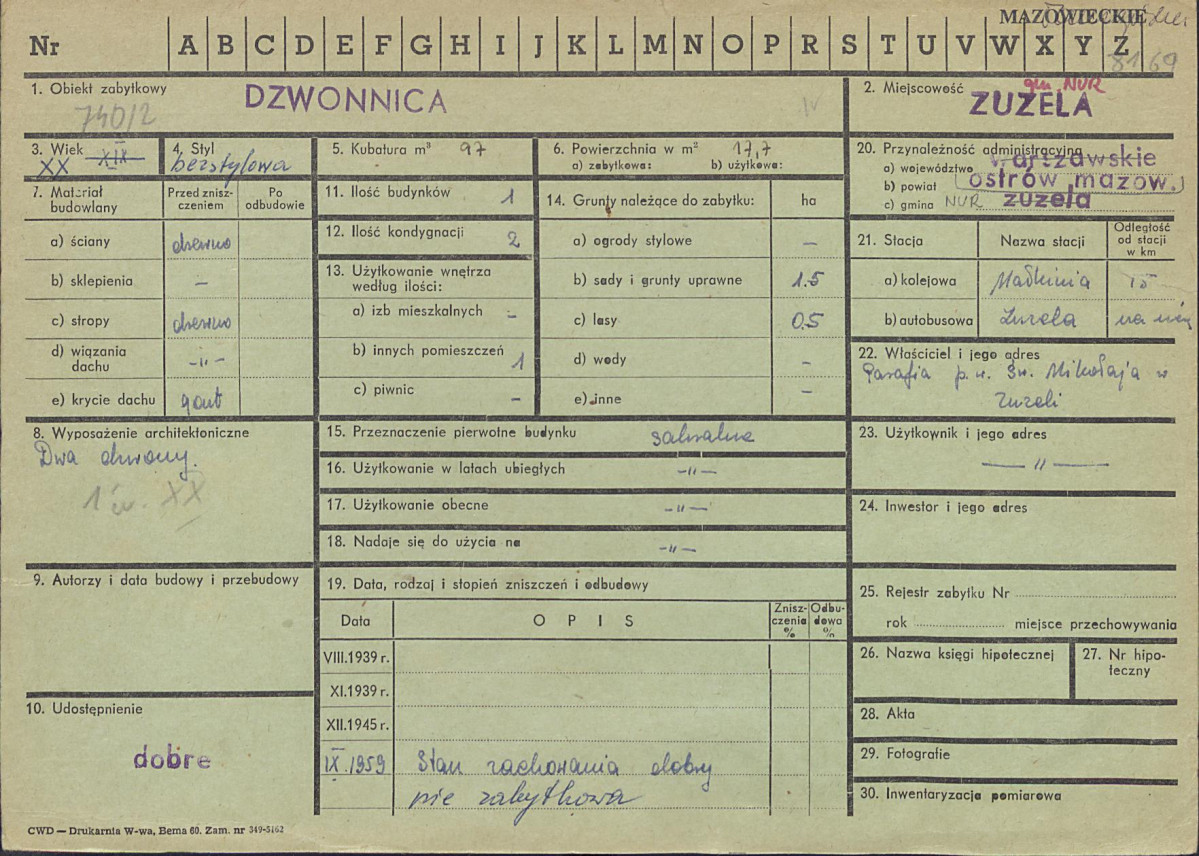 MAZOWIECKIE
Nr A B C D E F G H I J K L M N O P R S T U V W X Y Z
8169
1. Obiekt zabytkowy DZWONNICA
740/2
2. Miejscowość gm. NUR
ZUZELA
3. Wiek XX XIX
4. Styl bezstylowa
5. Kubatura m³ 97
6. Powierzchnia w m² 17,7
a) zabytkowa: b) użytkowa:
20. Przynależność administracyjna
a) województwo warszawskie
b) powiat ostrów mazow.
c) gmina NUR zuzela
7. Materiał budowlany
Przed zniszczeniem
Po odbudowie
a) ściany drewno
b) sklepienia –
c) stropy drewno
d) wiązania dachu –"–
e) krycie dachu gont
11. Ilość budynków 1
12. Ilość kondygnacji 2
13. Użytkowanie wnętrza według ilości:
a) izb mieszkalnych –
b) innych pomieszczeń 1
c) piwnic –
14. Grunty należące do zabytku: ha
a) ogrody stylowe –
b) sady i grunty uprawne 1.5
c) lasy 0.5
d) wody –
e) inne –
21. Stacja
Nazwa stacji
Odległość od stacji w km
a) kolejowa Małkinia 15
b) autobusowa Zuzela
22. Właściciel i jego adres
Parafia p.w. Św. Mikołaja w
Zuzeli
8. Wyposażenie architektoniczne
Dwa dzwony.
XX
15. Przeznaczenie pierwotne budynku sakralne
16. Użytkowanie w latach ubiegłych –"–
17. Użytkowanie obecne –"–
18. Nadaje się do użycia na –"–
23. Użytkownik i jego adres
–"–
24. Inwestor i jego adres
9. Autorzy i data budowy i przebudowy
19. Data, rodzaj i stopień zniszczeń i odbudowy
Data OPIS Zniszczenia % Odbudowa %
VIII.1939 r.
XI.1939 r.
XII.1945 r.
IX.1959 Stan zachowania dobry
nie zabytkowa
25. Rejestr zabytku Nr
rok miejsce przechowywania
26. Nazwa księgi hipotecznej
27. Nr hipoteczny
10. Udostępnienie
dobre
28. Akta
29. Fotografie
30. Inwentaryzacja pomiarowa
CWD — Drukarnia W-wa, Bema 60. Zam. nr 349-5162